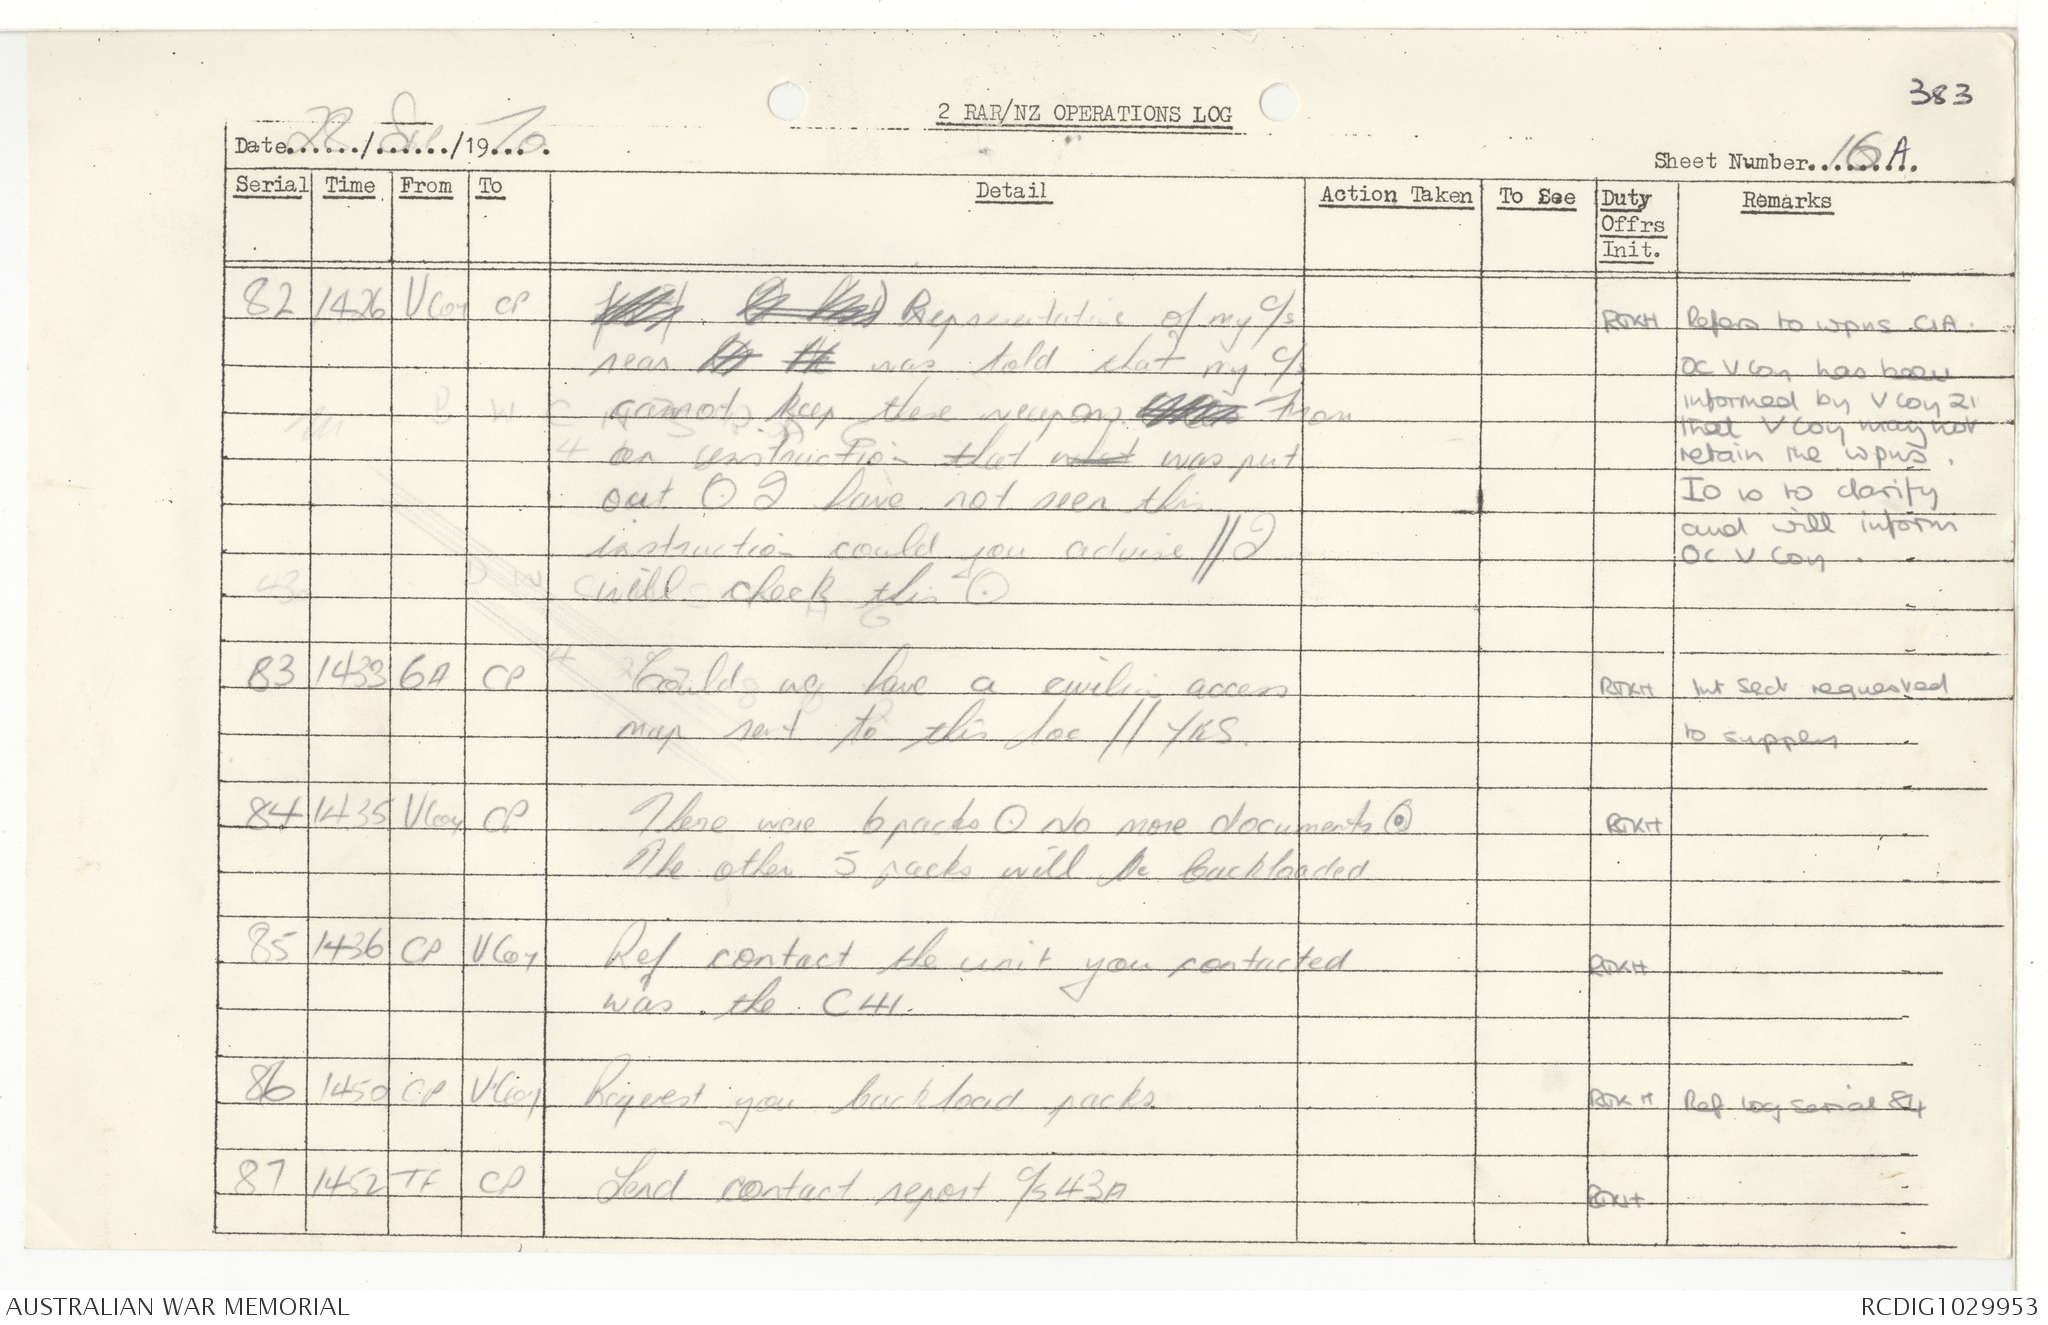 383
2 RAR/NZ OPERATIONS LOG
Date 28 / Sep / 19 70
Sheet Number 16A.
Serial Time From To Detail Action Taken To See Duty Offrs Init. Remarks
82 1426 V Coy CP Representative of my c/s RTKH Refers to wpns CIA.
near was told that my c/s OC V Coy has been
cannot keep these weapons from informed by V Coy 21
that V Coy may not
an instruction that was put retain the wpns.
out ⊙ I have not seen this IO is to clarify
instruction could you advise // I and will inform
OC V Coy.
will check this ⊙
83 1433 6A CP Could we have a civilian access RTKH Int Sect requested
map sent to this loc // YES. to supply
84 1435 V Coy CP There were 6 packs ⊙ No more documents ⊙ RTKH
The other 5 packs will be backloaded
85 1436 CP V Coy Ref contact the unit you contacted RTKH
was the C41.
86 1450 CP V Coy Request you backload packs. RTKH Ref log serial 84
87 1452 TF CP Send contact report c/s 43A RTKH
AUSTRALIAN WAR MEMORIAL
RCDIG1029953